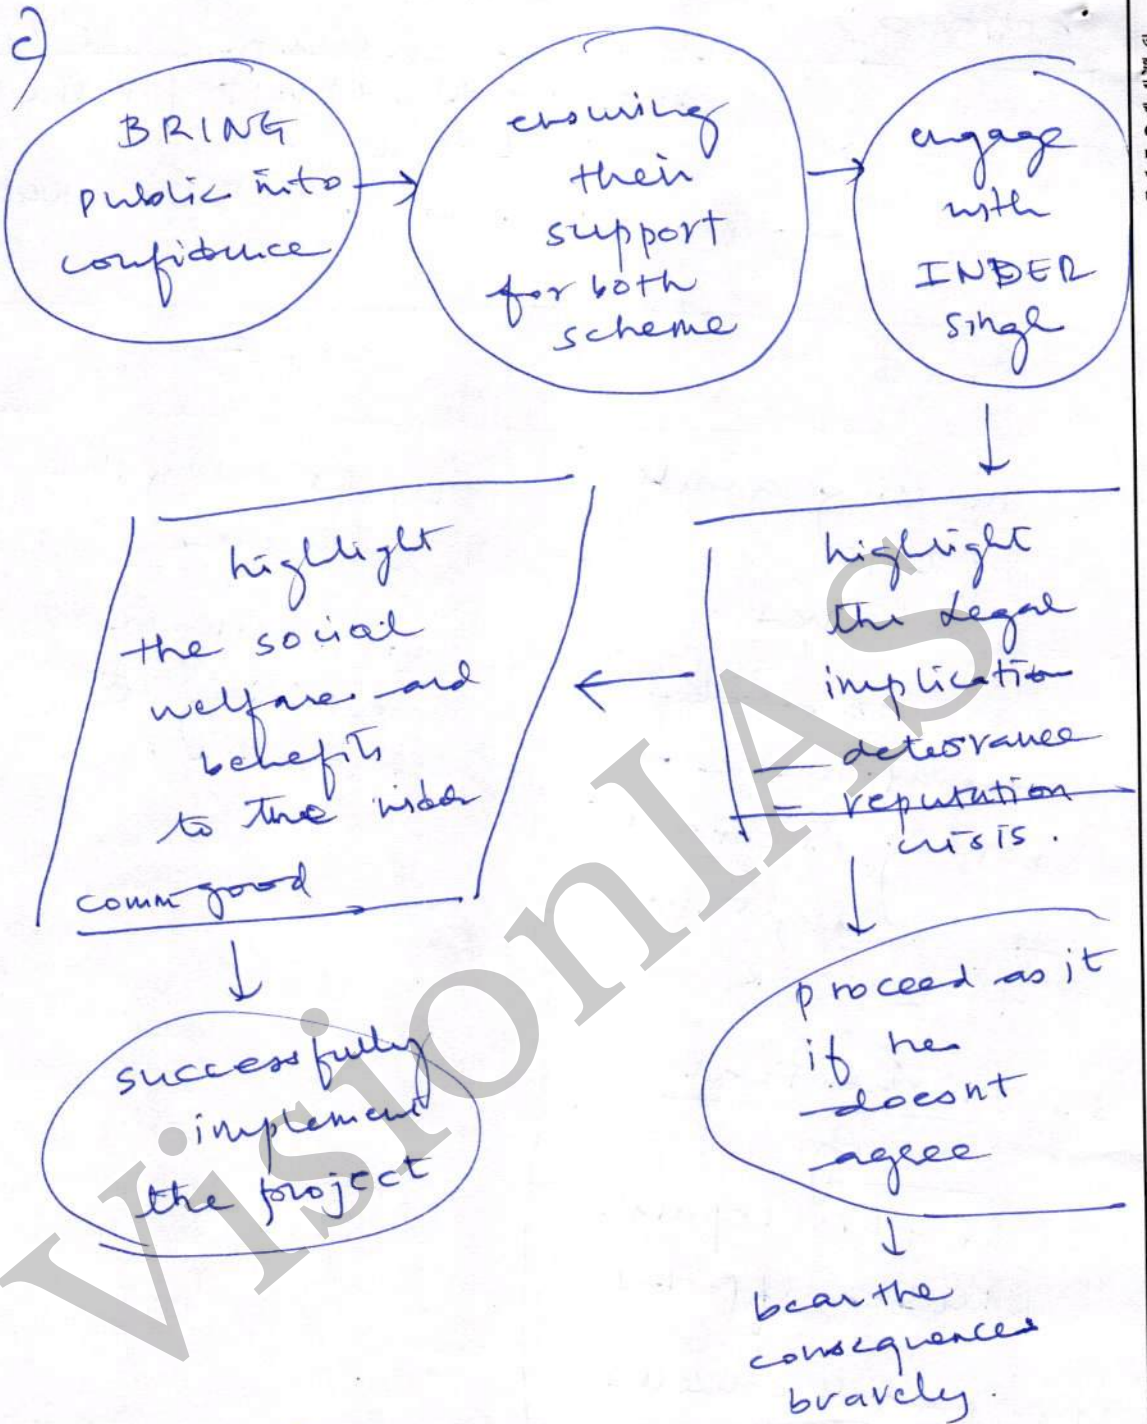 c)
BRING
public into
confidence
ensuring
their
support
for both
scheme
engage
with
INDER
singh
highlight
the legal
implication
— deterrance
— reputation
crisis.
highlight
the social
welfare and
benefits
to the wider
comm good
successfully
implement
the project
proceed as it
if he
doesnt
agree
bear the
consequences
bravely.
VisionIAS